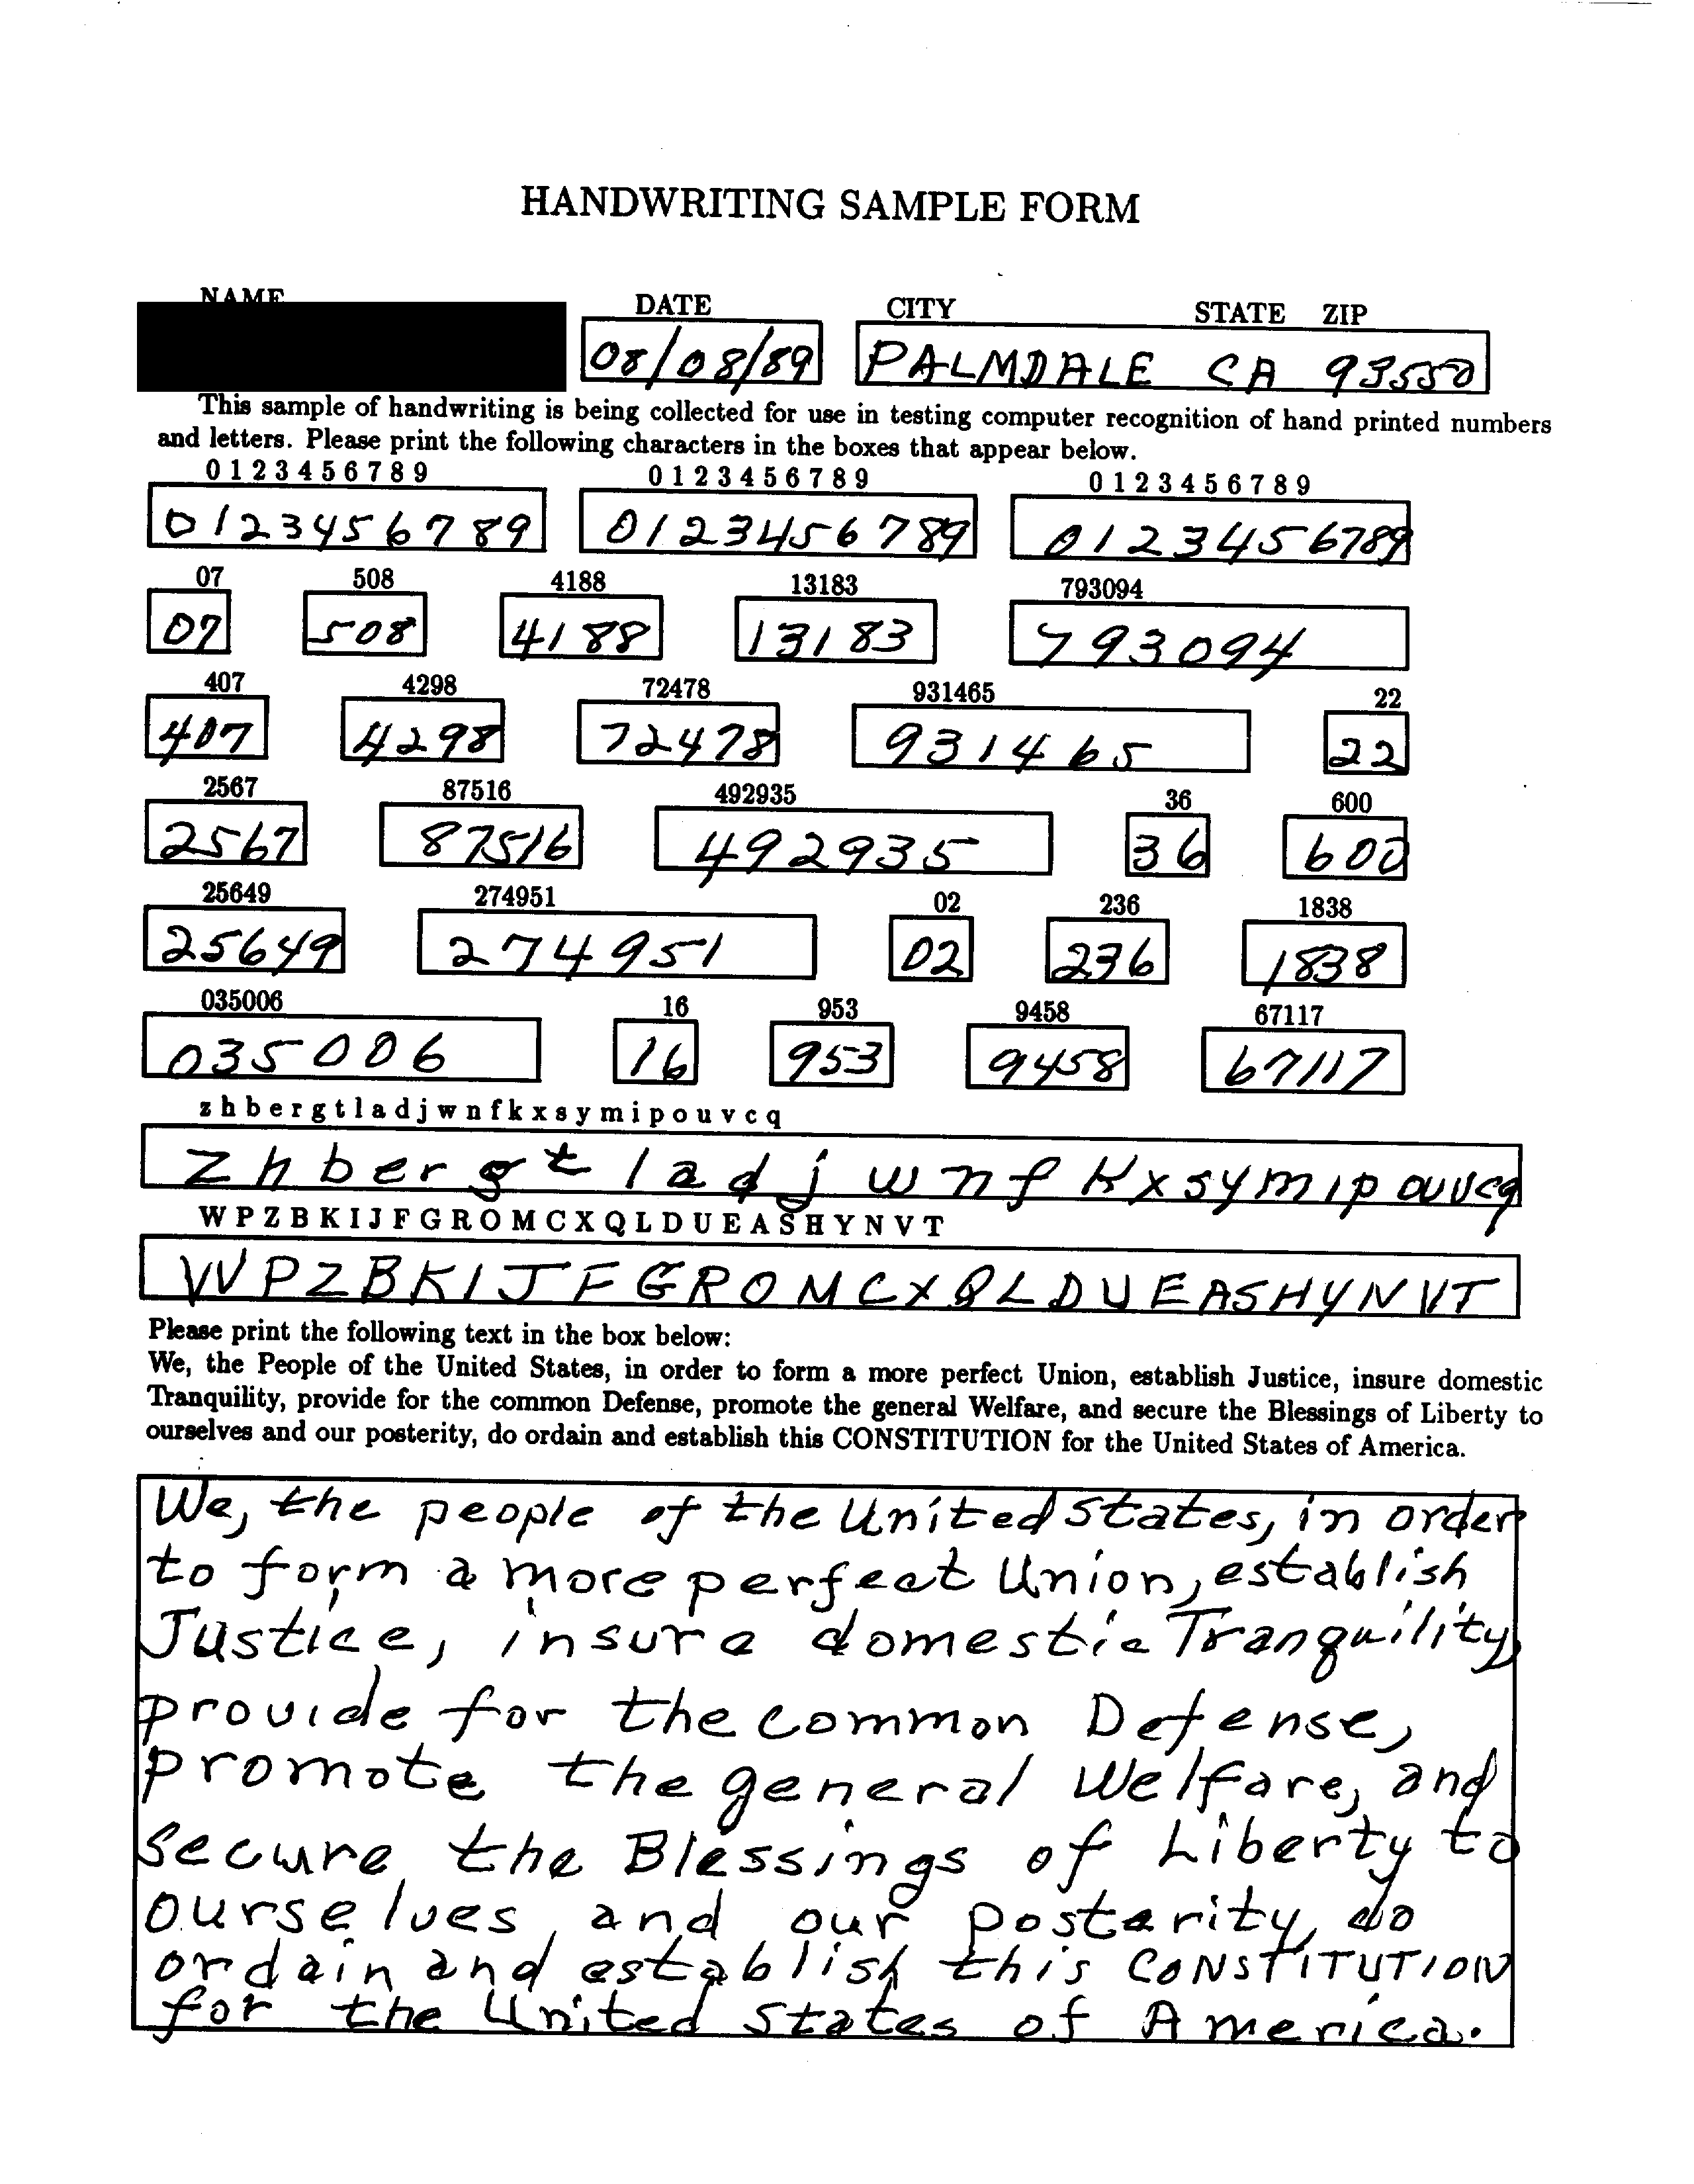 HANDWRITING SAMPLE FORM
NAME DATE CITY STATE ZIP
08/08/89 PALMDALE CA 93550
This sample of handwriting is being collected for use in testing computer recognition of hand printed numbers
and letters. Please print the following characters in the boxes that appear below.
0 1 2 3 4 5 6 7 8 9 0 1 2 3 4 5 6 7 8 9 0 1 2 3 4 5 6 7 8 9
0123456789 0123456789 0123456789
07 508 4188 13183 793094
07 508 4188 13183 793094
407 4298 72478 931465 22
407 4298 72478 931465 22
2567 87516 492935 36 600
2567 87516 492935 36 600
25649 274951 02 236 1838
25649 274951 02 236 1838
035006 16 953 9458 67117
035006 16 953 9458 67117
z h b e r g t l a d j w n f k x s y m i p o u v c q
z h b e r g t l a d j w n f k x s y m i p o u v c q
W P Z B K I J F G R O M C X Q L D U E A S H Y N V T
W P Z B K I J F G R O M C X Q L D U E A S H Y N V T
Please print the following text in the box below:
We, the People of the United States, in order to form a more perfect Union, establish Justice, insure domestic
Tranquility, provide for the common Defense, promote the general Welfare, and secure the Blessings of Liberty to
ourselves and our posterity, do ordain and establish this CONSTITUTION for the United States of America.
We, the people of the United States, in order
to form a more perfect Union, establish
Justice, insure domestic Tranquility,
provide for the common Defense,
promote the general Welfare, and
secure the Blessings of Liberty to
ourselves and our posterity, do
ordain and establish this CONSTITUTION
for the United States of America.